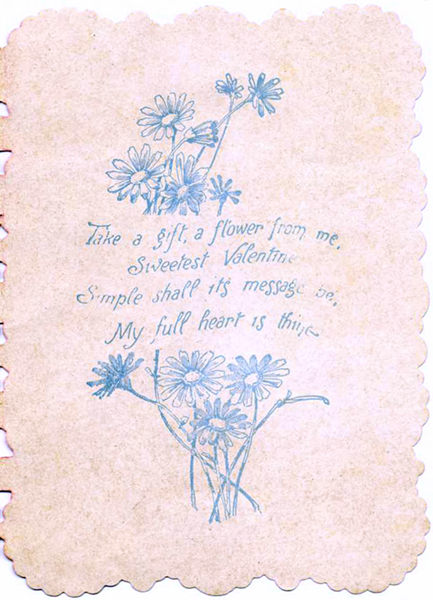 Take a gift, a flower from me,
Sweetest Valentine
Simple shall its message be,
My full heart is thine